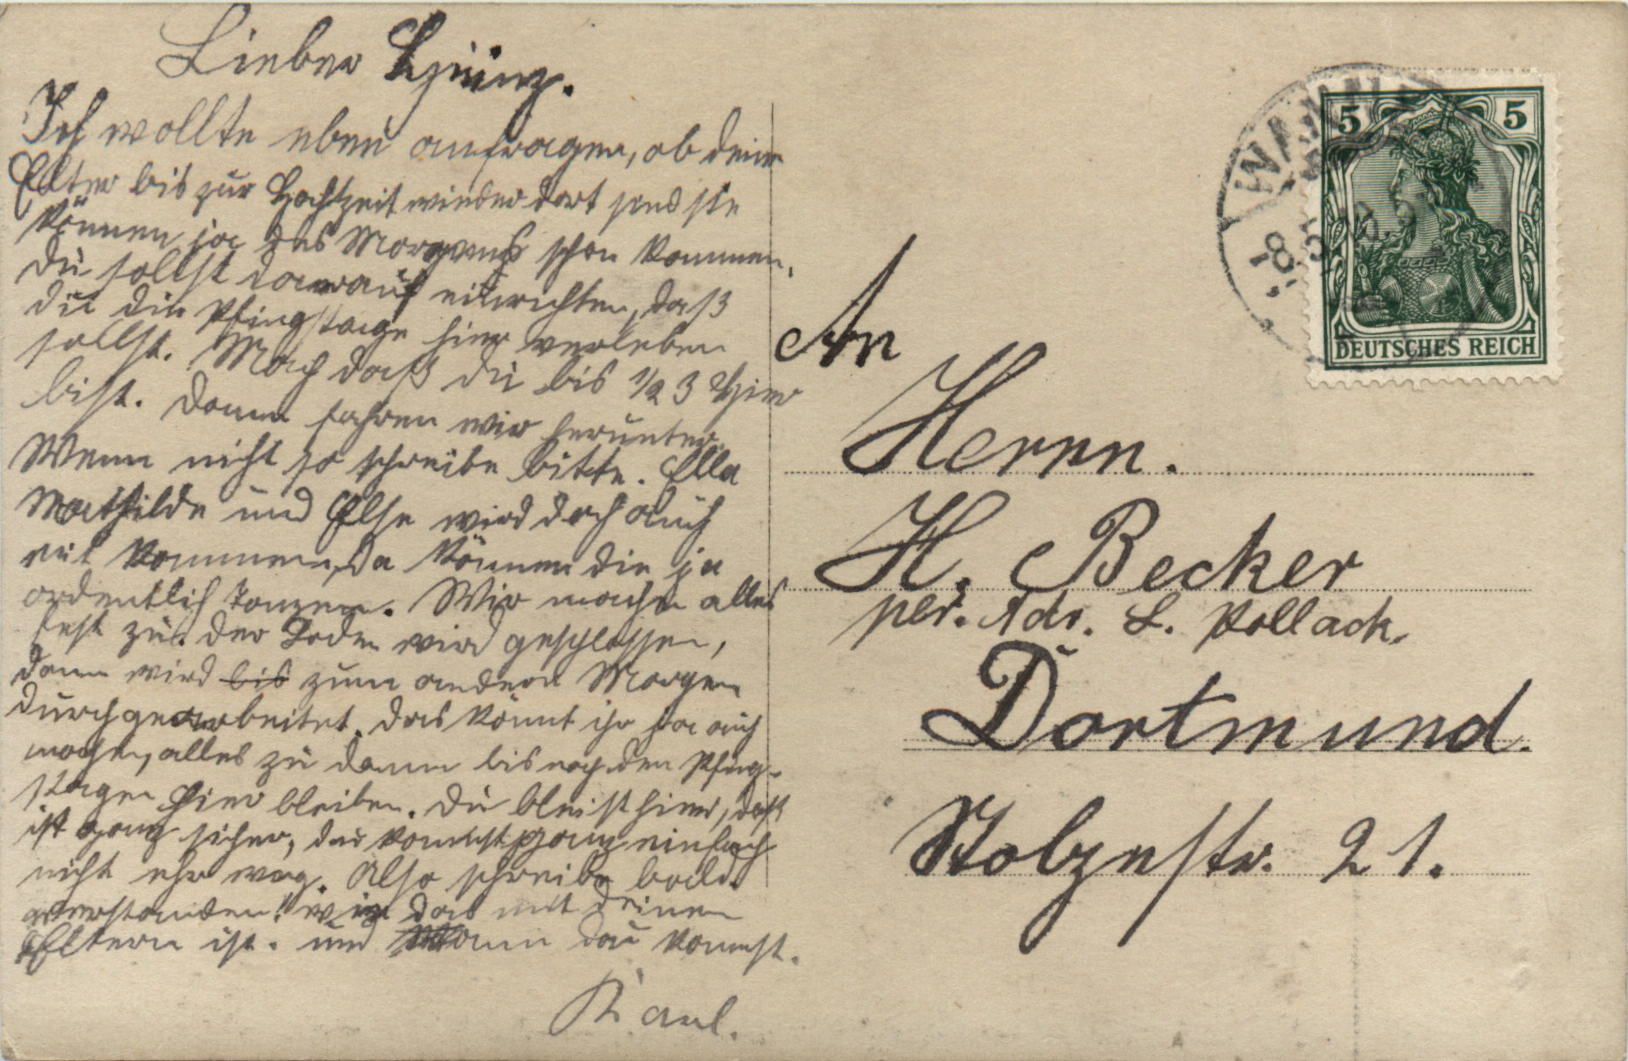 Lieber Heinz.
Ich wollte eben anfragen, ob deine
Elter bis zur Hochzeit wieder dort sind sie
können ja des Morgens schon kommen.
du sollst darauf einrichten, daß
du die Pfingstage hier verleben
sollst. Mach daß du bis 1/2 3 hier
bist. Dann fahren wir herunter.
Wenn nicht so schreibe bitte. Ella
Mathilde und Else wird doch auch
mit kommen, da können die ja
ordentlich tanzen. Wir machen alles
fest zu. der Laden wird geschlossen,
dann wird bis zum andern Morgen
durchgearbeitet. das könnt ihr ja auch
machen, alles zu dann bis nach den Pfing-
stagen hier bleiben. du bleist hier, daß
ist ganz sicher, du kommst ganz einfach
nicht ehr weg. Also schreibe bald.
verstanden! wie das mit deinen
Eltern ist. und wann du kommst.
Karl.
5 5
DEUTSCHES REICH
An
Herrn.
H. Becker
per. Adr. L. Pollack.
Dortmund.
Stolzestr. 21.